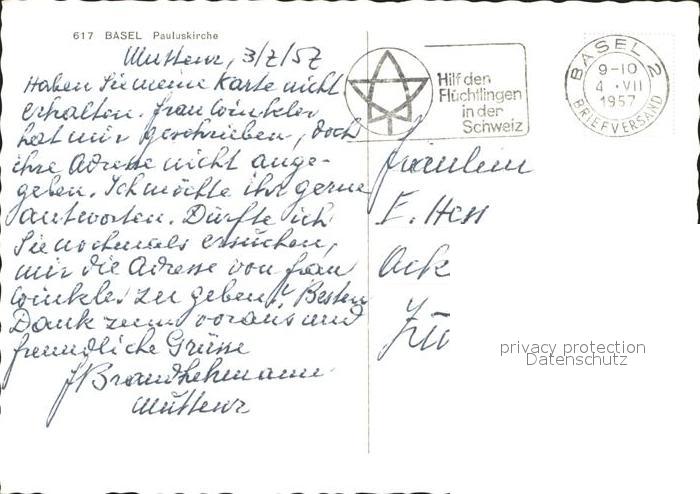 617 BASEL Pauluskirche
Muttenz, 3/7/57
Haben Sie meine Karte nicht
erhalten. Frau Winkler
hat mir geschrieben, doch
ihre Adresse nicht ange-
geben. Ich möchte ihr gerne
antworten. Dürfte ich
Sie nochmals ersuchen,
mir die Adresse von Frau
Winkler zu geben? Besten
Dank zum voraus und
freundliche Grüsse
Muttenz
Hilf den
Flüchtlingen
in der
Schweiz
BASEL 2
9-10
4 ·VII
1957
BRIEFVERSAND
Fräulein
E. Hess
Ack
Zü
privacy protection
Datenschutz